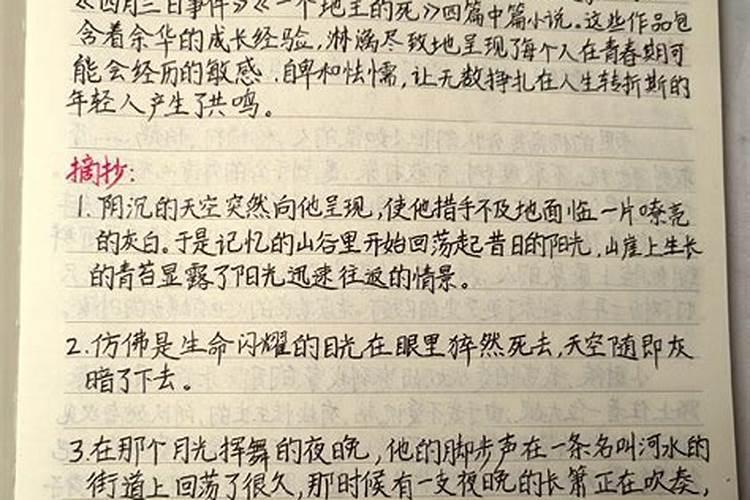 《四月三日事件》《一个地主的死》四篇中篇小说。这些作品包
含着余华的成长经验,淋漓尽致地呈现了每个人在青春期可
能会经历的敏感、自卑和怯懦,让无数挣扎在人生转折斯的
年轻人产生了共鸣。
摘抄:
1. 阴沉的天空突然向他呈现,使他措手不及地面临一片嘹亮
的灰白。于是记忆的山谷里开始回荡起昔日的阳光,山崖上生长
的青苔显露了阳光迅速往返的情景。
2. 仿佛是生命闪耀的目光在眼里猝然死去,天空随即灰
暗了下去。
3. 在那个月光挥舞的夜晚,他的脚步声在一条名叫河水的
街道上回荡了很久,那时候有一支夜晚的长箫正在吹奏,